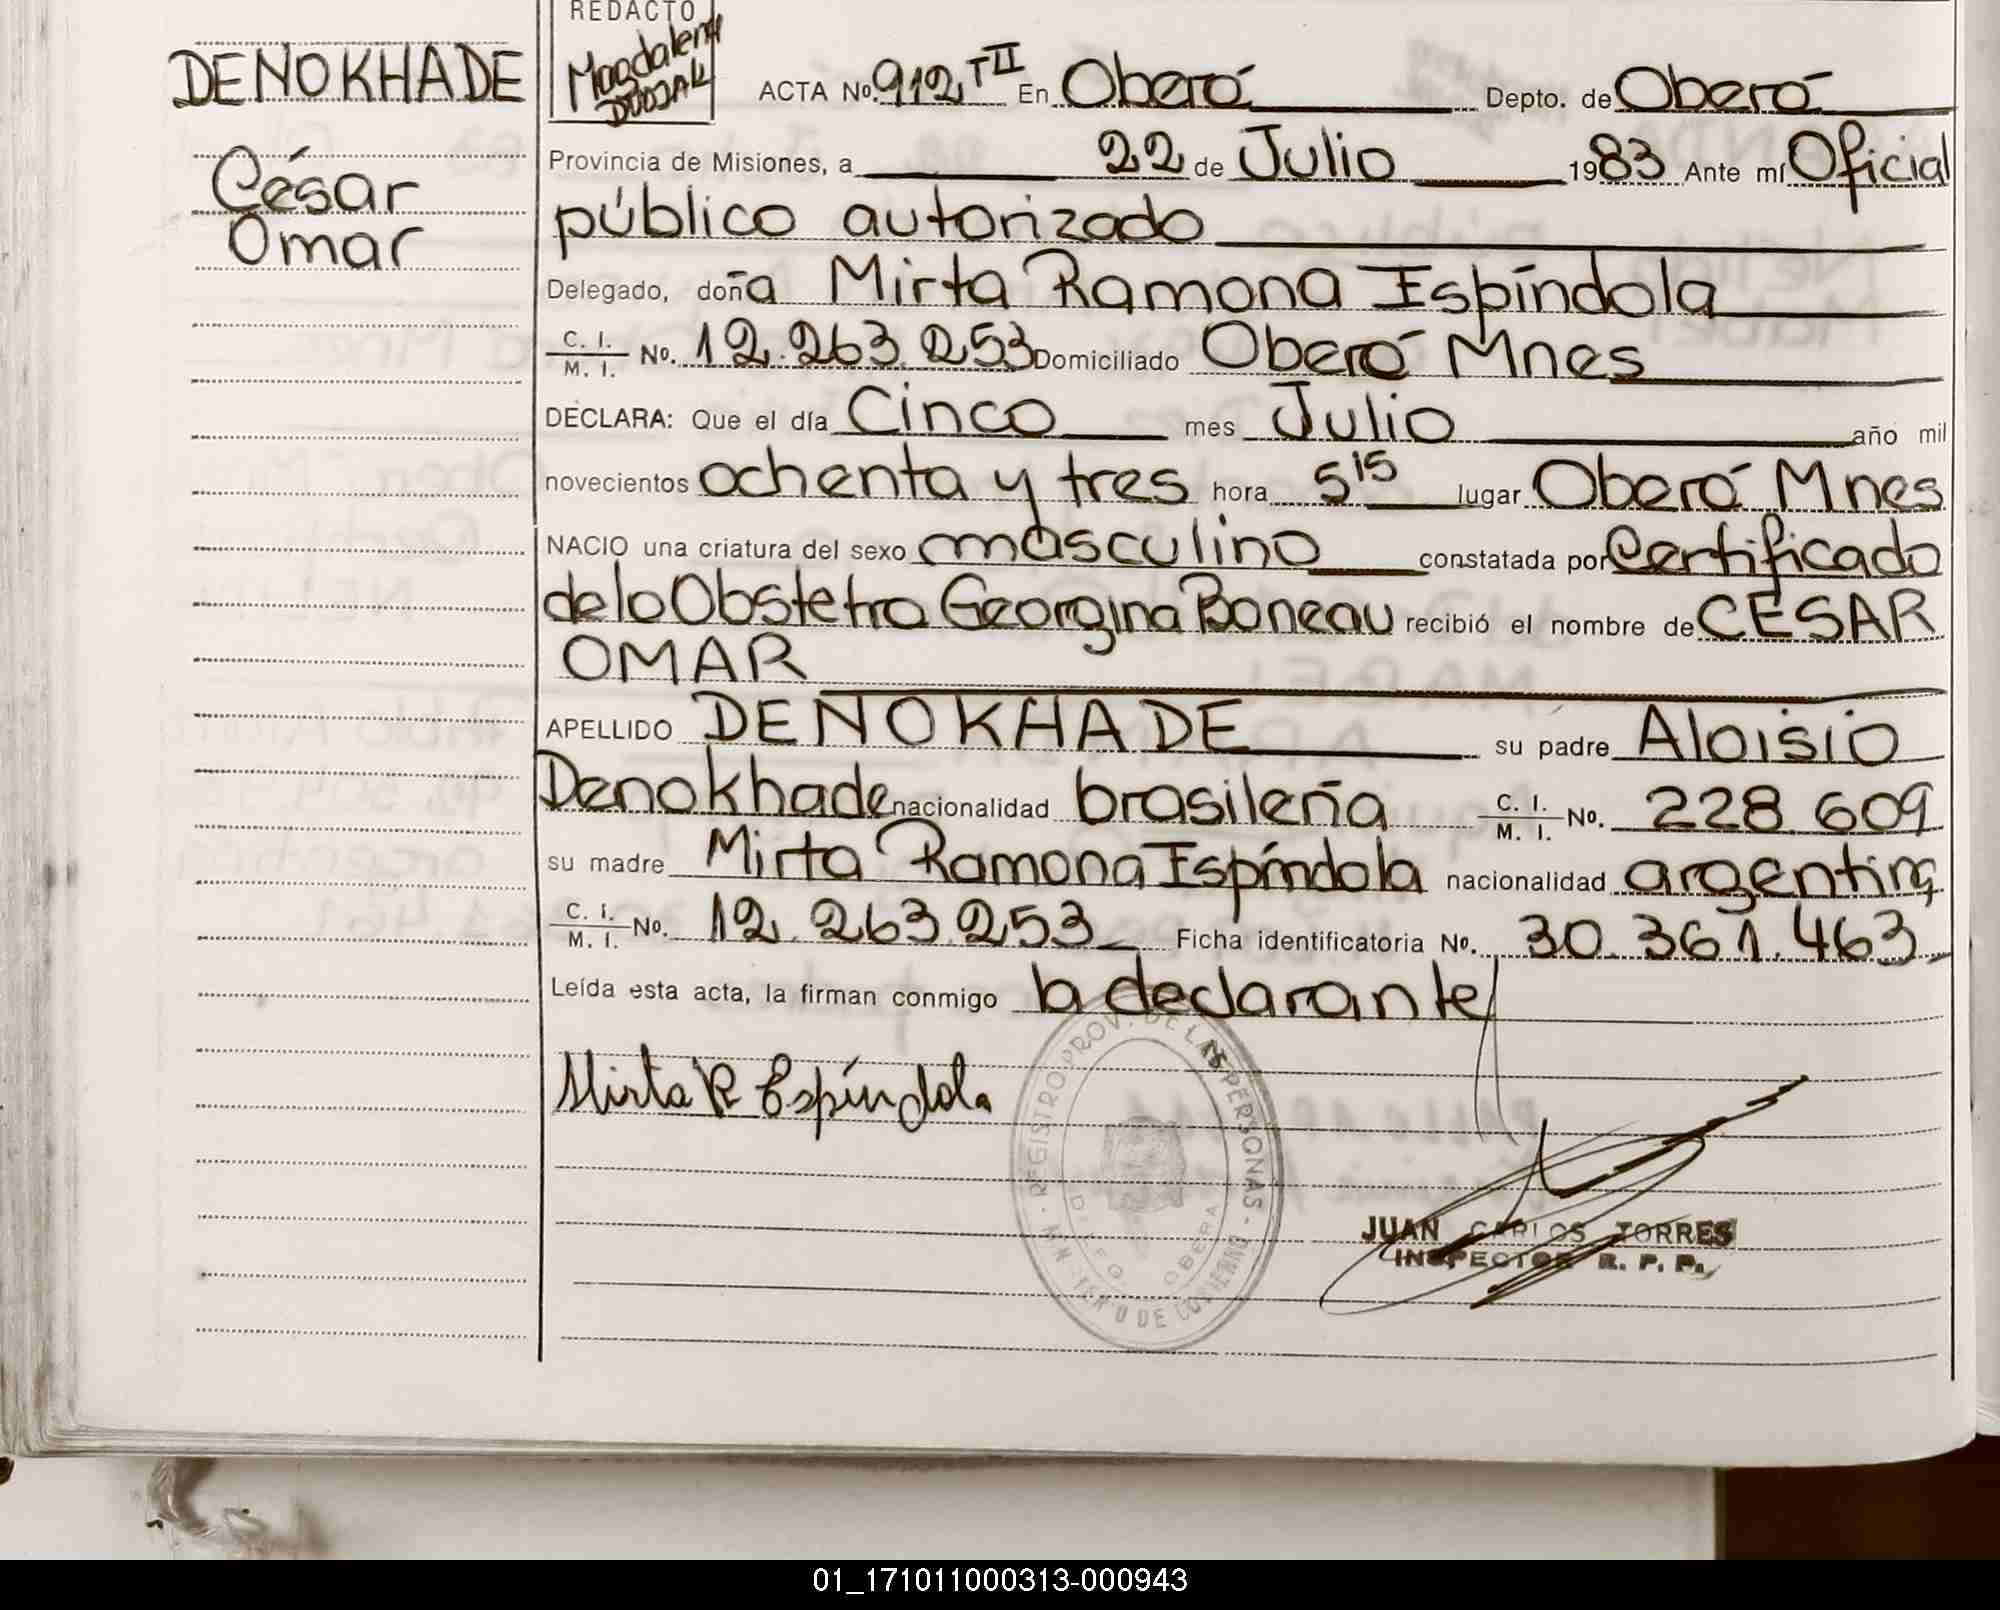 REDACTO
Magdalena
DUDJAK
DENOKHADE
César
Omar
ACTA No. 912 TII En Oberá Depto. de Oberá
Provincia de Misiones, a 22 de Julio 1983 Ante mí Oficial
público autorizado
Delegado, doña Mirta Ramona Espíndola
C. I. / M. I. No. 12.263.253 Domiciliado Oberá Mnes
DECLARA: Que el día Cinco mes Julio año mil
novecientos ochenta y tres hora 5 15 lugar Oberá Mnes
NACIO una criatura del sexo masculino constatada por Certificado
de la Obstetra Georgina Boneau recibió el nombre de CESAR
OMAR
APELLIDO DENOKHADE su padre Aloisio
Denokhade nacionalidad brasileña C. I. / M. I. No. 228.609
su madre Mirta Ramona Espíndola nacionalidad argentina
C. I. / M. I. No. 12.263.253 Ficha identificatoria No. 30.361.463
Leída esta acta, la firman conmigo la declarante
Mirta R Espíndola
REGISTRO PROV. DE LAS PERSONAS
OBERA
JUAN CARLOS TORRES
INSPECTOR R. P. P.
01_171011000313-000943